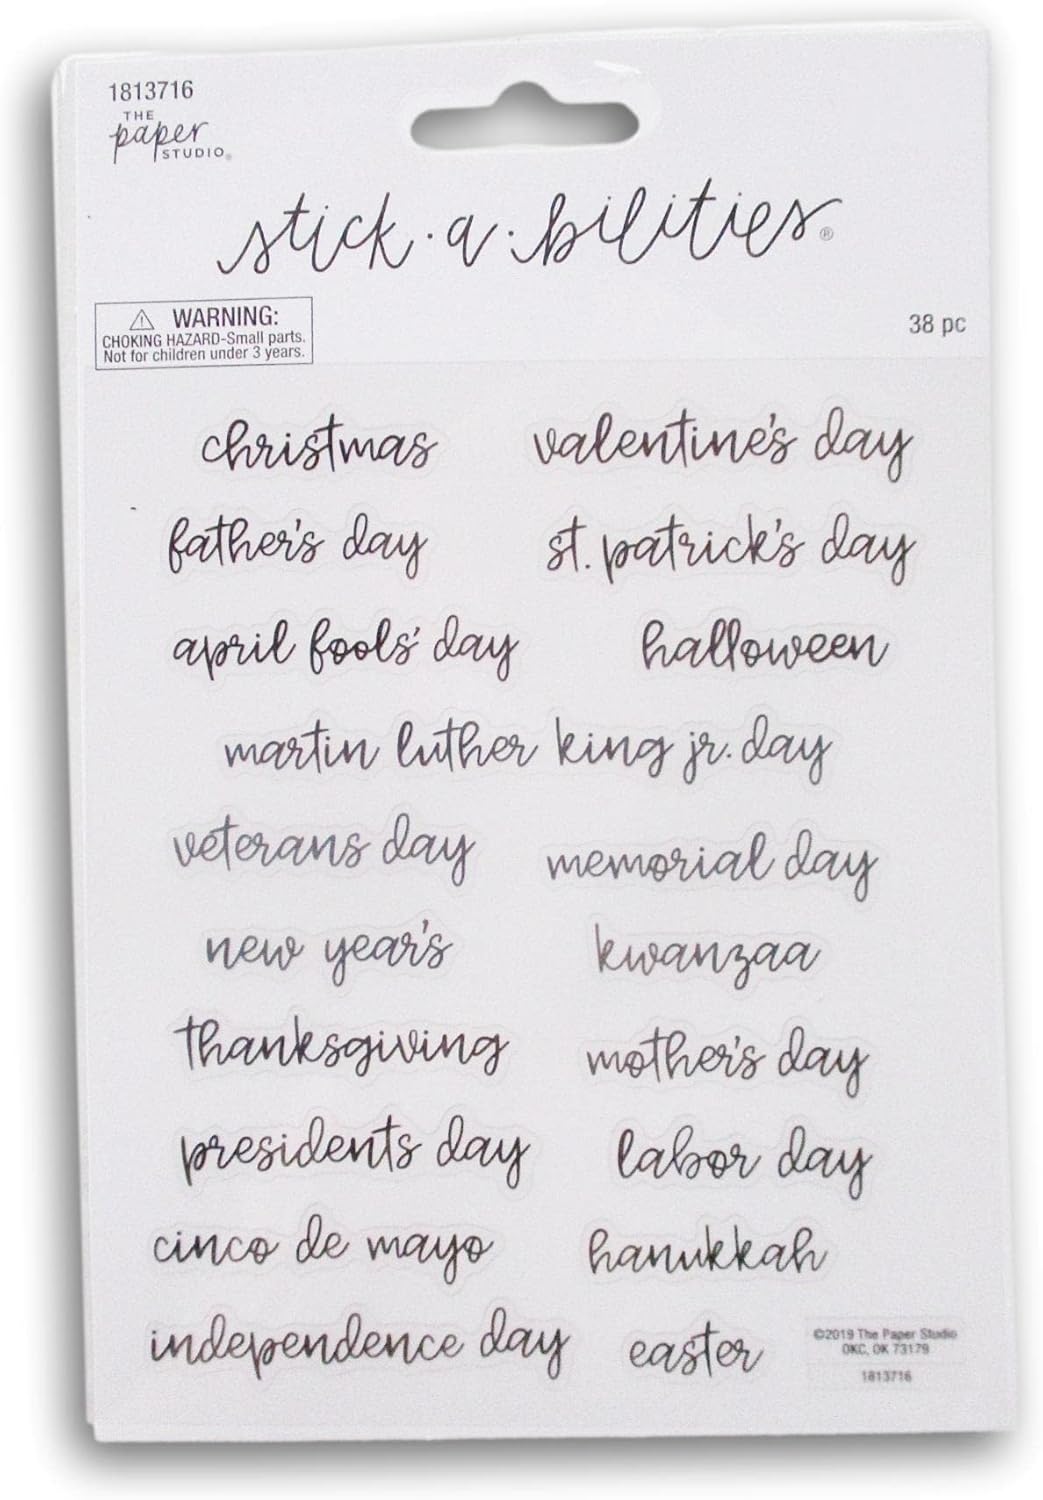 1813716
THE
paper
STUDIO®
stick·a·bilities®
⚠ WARNING:
CHOKING HAZARD-Small parts.
Not for children under 3 years.
38 pc
christmas
valentine's day
father's day
st. patrick's day
april fools' day
halloween
martin luther king jr. day
veterans day
memorial day
new year's
kwanzaa
thanksgiving
mother's day
presidents day
labor day
cinco de mayo
hanukkah
independence day
easter
©2019 The Paper Studio
OKC, OK 73179
1813716